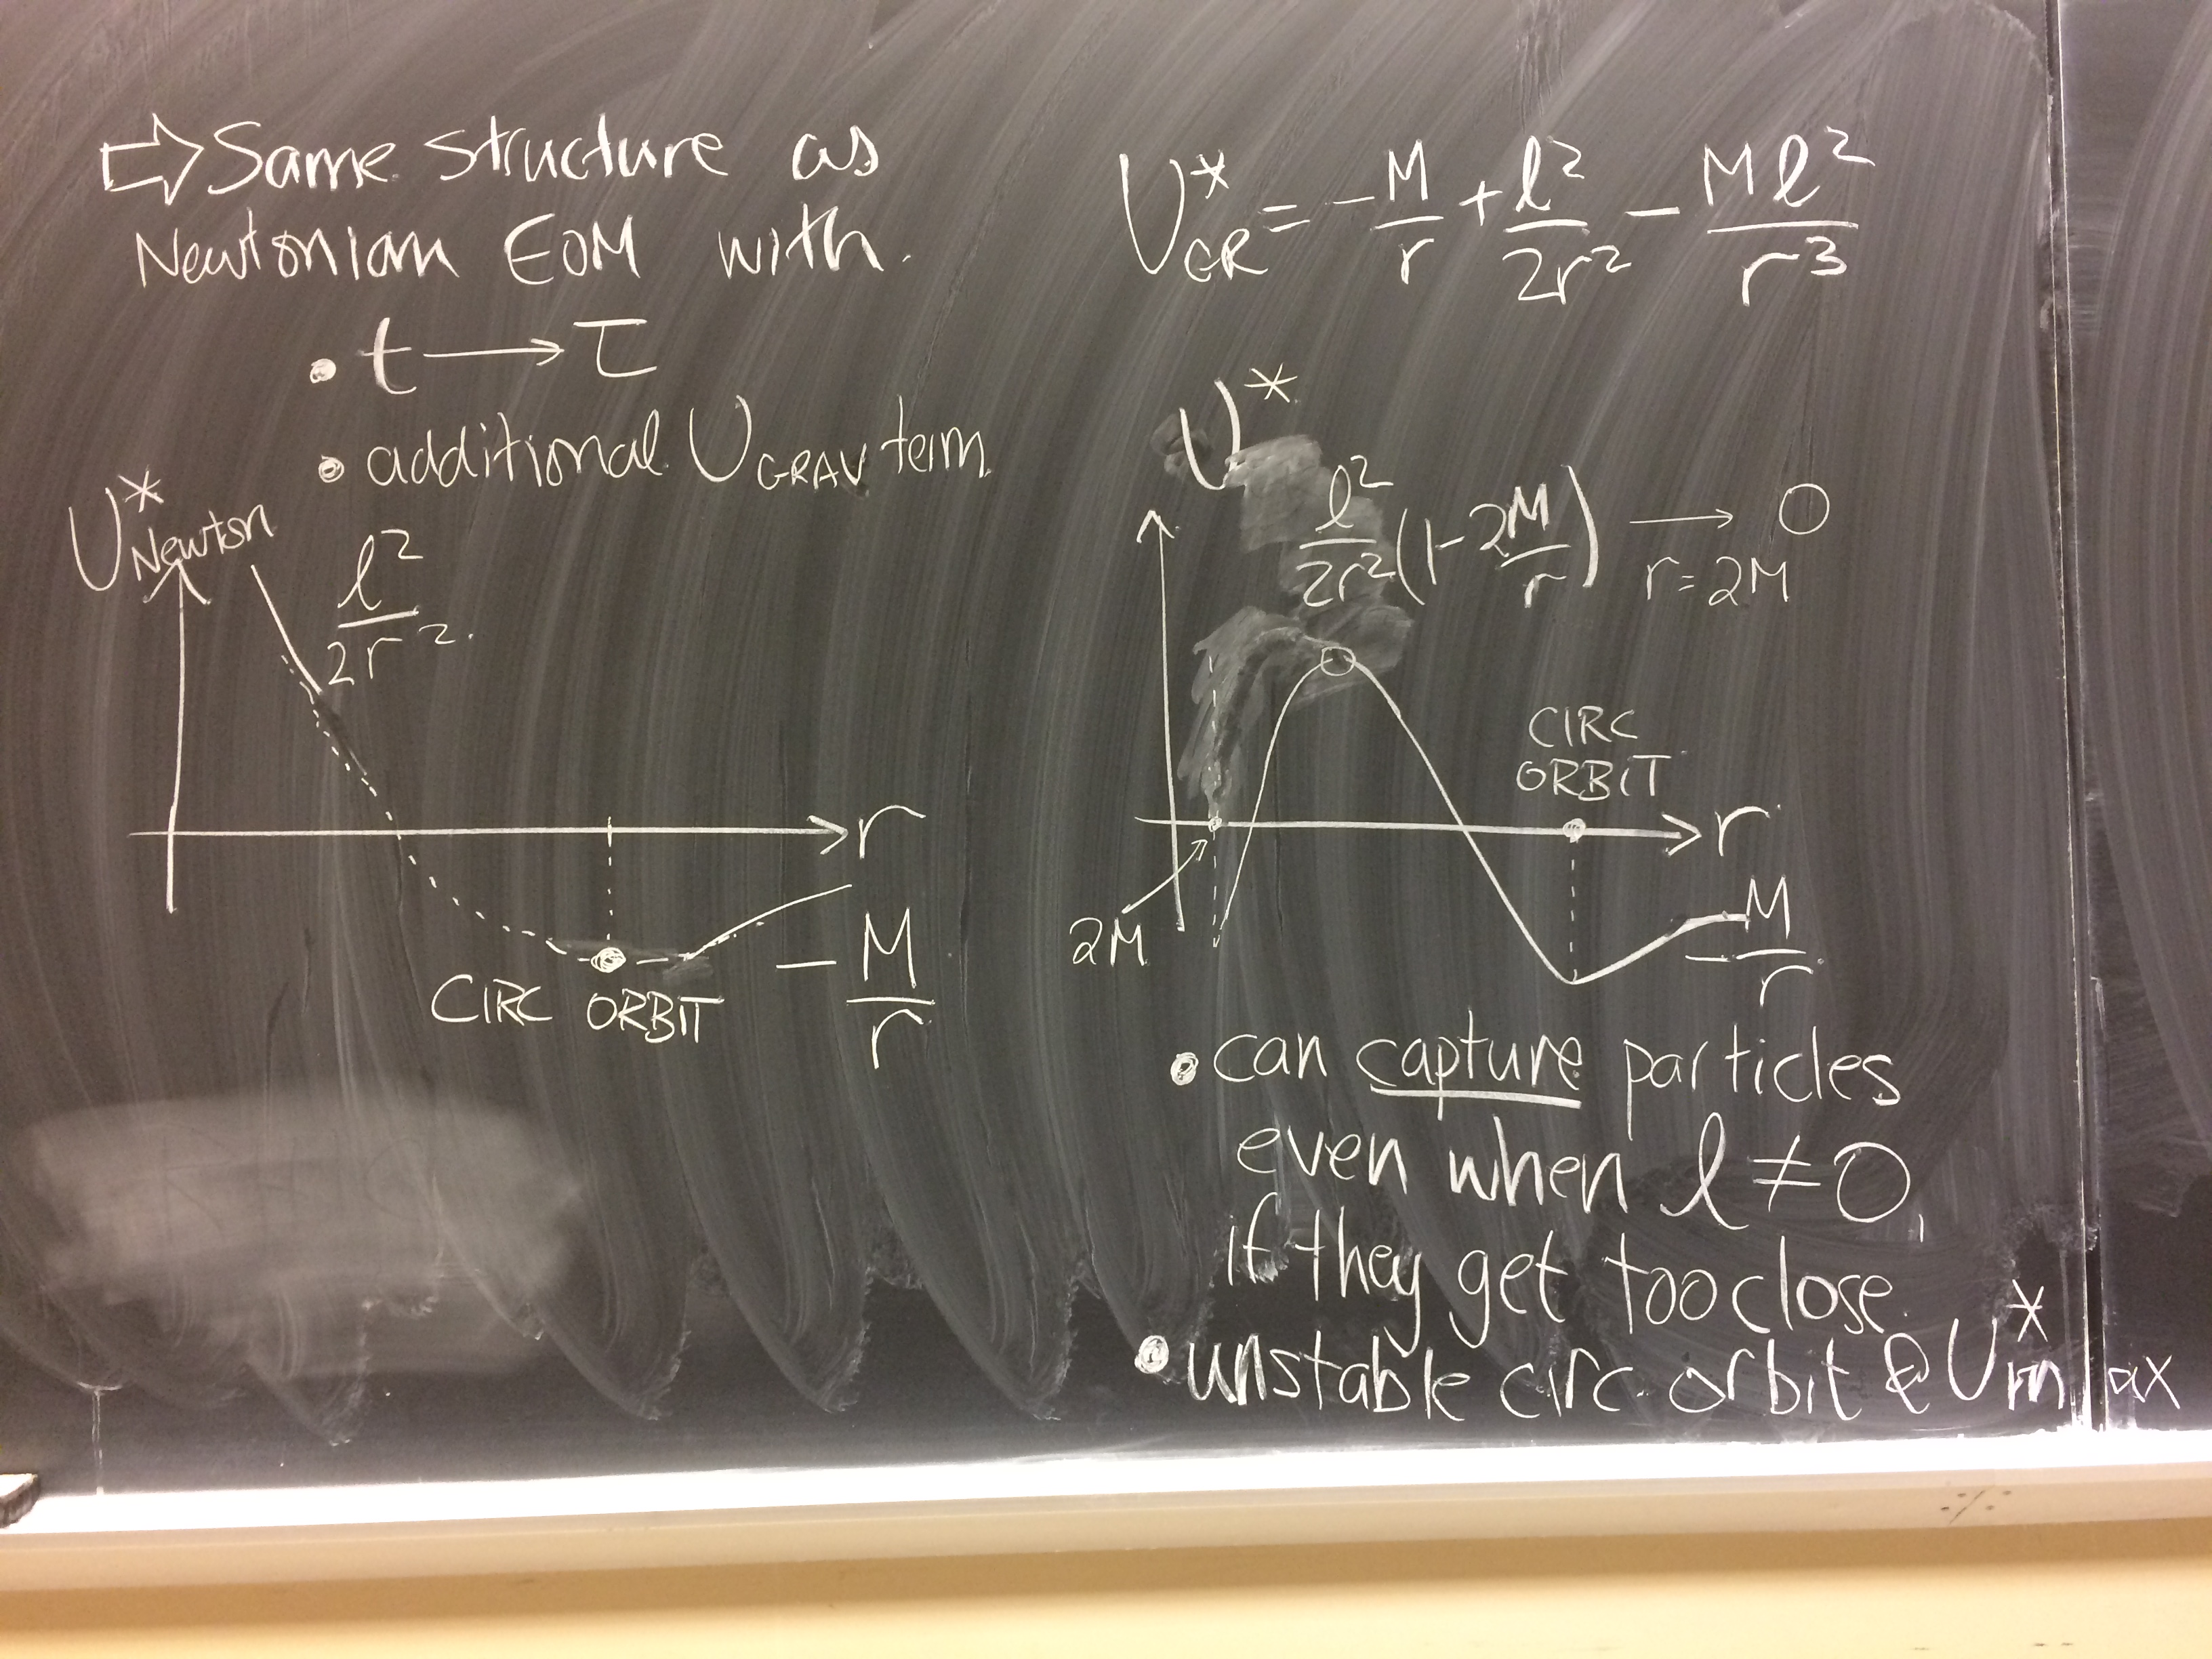 ⇨ Same structure as
Newtonian EOM with.
• t → τ
• additional U_GRAV term.
U*_Newton
l²/2r².
r
CIRC ORBIT
-M/r
U*_GR = -M/r + l²/2r² - Ml²/r³
U*
l²/2r² (1-2M/r) → 0
r=2M
CIRC
ORBIT
r
2M
-M/r
• can capture particles
even when l ≠ 0,
if they get too close.
• unstable circ. orbit @ U*_max